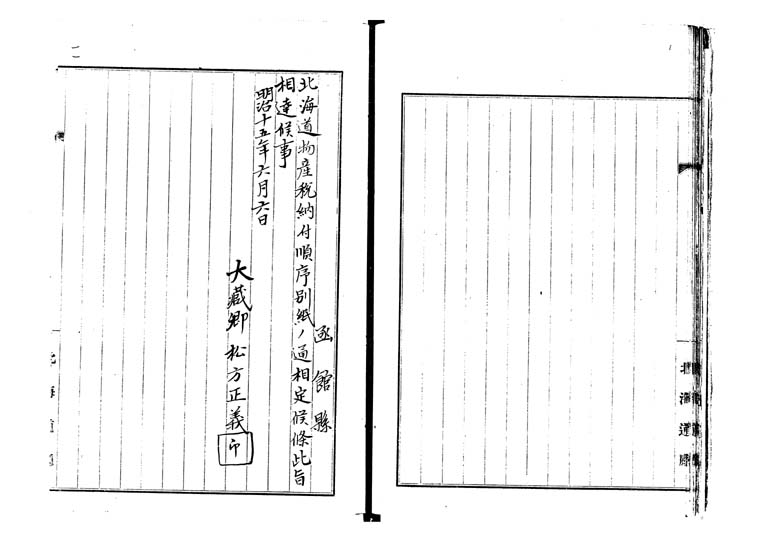 函館縣
北海道物産税納付順序別紙ノ通相定候條此旨
相達候事
明治十五年六月六日
大藏卿 松方正義
印
北海道廳